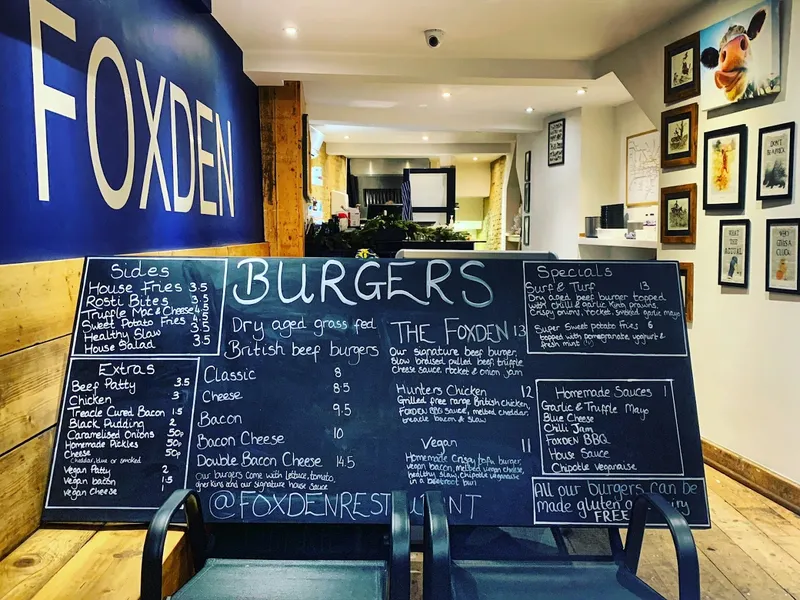 FOXDEN
DON'T
BE A PRICK
WHAT
THE
ACTUAL
WHO
GIVES A
CLUCK
Sides
House Fries 3.5
Rosti Bites 3.5
Truffle Mac & Cheese 4.5
Sweet Potato Fries 4.5
Healthy Slaw 3.5
House Salad 3.5
Extras
Beef Patty 3.5
Chicken 3
Treacle Cured Bacon 1.5
Black Pudding 2
Caramelised Onions 50p
Homemade Pickles 50p
Cheese 50p
cheddar, blue or smoked
Vegan Patty 2
Vegan bacon 1.5
Vegan Cheese 1
BURGERS
Dry aged grass fed
British beef burgers
Classic 8
Cheese 8.5
Bacon 9.5
Bacon Cheese 10
Double Bacon Cheese 14.5
Our burgers come with lettuce, tomato,
gherkins and our signature house sauce
THE FOXDEN 13
Our signature beef burger,
slow braised pulled beef, truffle
cheese sauce, rocket & onion jam
Hunters Chicken 12
Grilled free range British chicken,
FOXDEN BBQ sauce, melted cheddar,
treacle bacon & slaw
Vegan 11
Homemade Crispy tofu burger,
vegan bacon, melted vegan cheese,
healthy slaw, chipotle veganaise
in a beetroot bun
@FOXDENRESTAURANT
Specials
Surf & Turf 13
Dry aged beef burger topped
with chilli & garlic king prawns,
crispy onions, rocket, smoked garlic mayo
Super Sweet potato Fries 6
topped with pomegranate yoghurt &
fresh mint
Homemade Sauces 1
Garlic & Truffle Mayo
Blue Cheese
Chilli Jam
FOXDEN BBQ
House Sauce
Chipotle Veganaise
All our burgers can be
made gluten or dairy
FREE